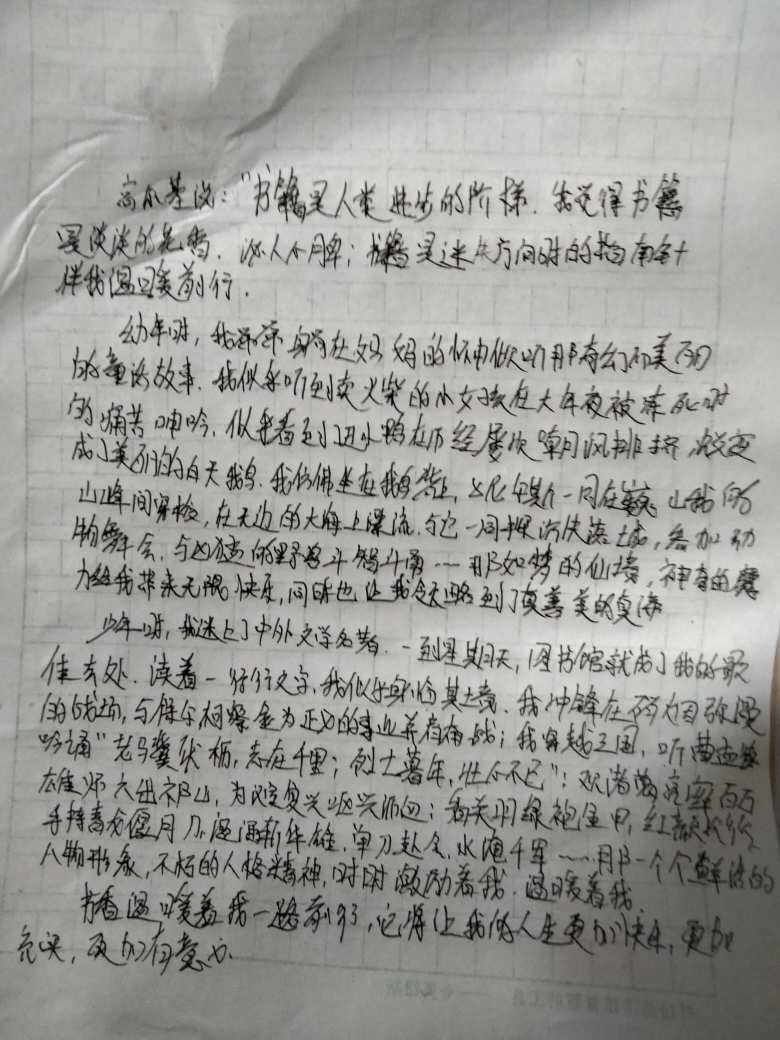 高尔基说："书籍是人类进步的阶梯．我觉得书籍
是淡淡的花香．沁人心脾；书籍是迷失方向时的指南针
伴我温暖前行．
幼年时，我常常躺在妈妈的怀中倾听那奇幻而美丽
的童话故事．我似乎听到卖火柴的小女孩在大年夜被冻死时
的痛苦呻吟，似乎看到丑小鸭在历经屡次嘲讽排挤，蜕变
成了美丽的白天鹅．我仿佛坐在我鹅背上，与尼尔斯一同在巍山的
山峰间穿梭，在无边的大海上漂流．与它一同探访快落城，参加动
物舞会．与凶猛的野兽斗智斗勇……那如梦的仙境，神奇的魔
力给我带来无限快乐，同时也让我领略到了真善美的真谛
少年时，我迷上了中外文学名著．一到星期天，图书馆就成了我的
佳去处．读着一行行文字，我似乎身临其境．我冲锋在硝烟弥漫
的战场，与保尔柯察金为正义的事业并肩奋战；我穿越三国，听曹孟德
吟诵"老马伏枥，志在千里；烈士暮年，壮心不已"；观诸葛亮率百万
雄师六出祁山，为汉室复兴呕心沥血；看关羽绿袍金甲，红
手持青龙偃月刀，温酒斩华雄．单刀赴会，水淹千军……那一个个鲜活的
人物形象，不朽的人格精神，时时激励着我．温暖着我．
书香温暖着我一路前行，它将让我的人生更加快乐，更加
充实，更加有意义．